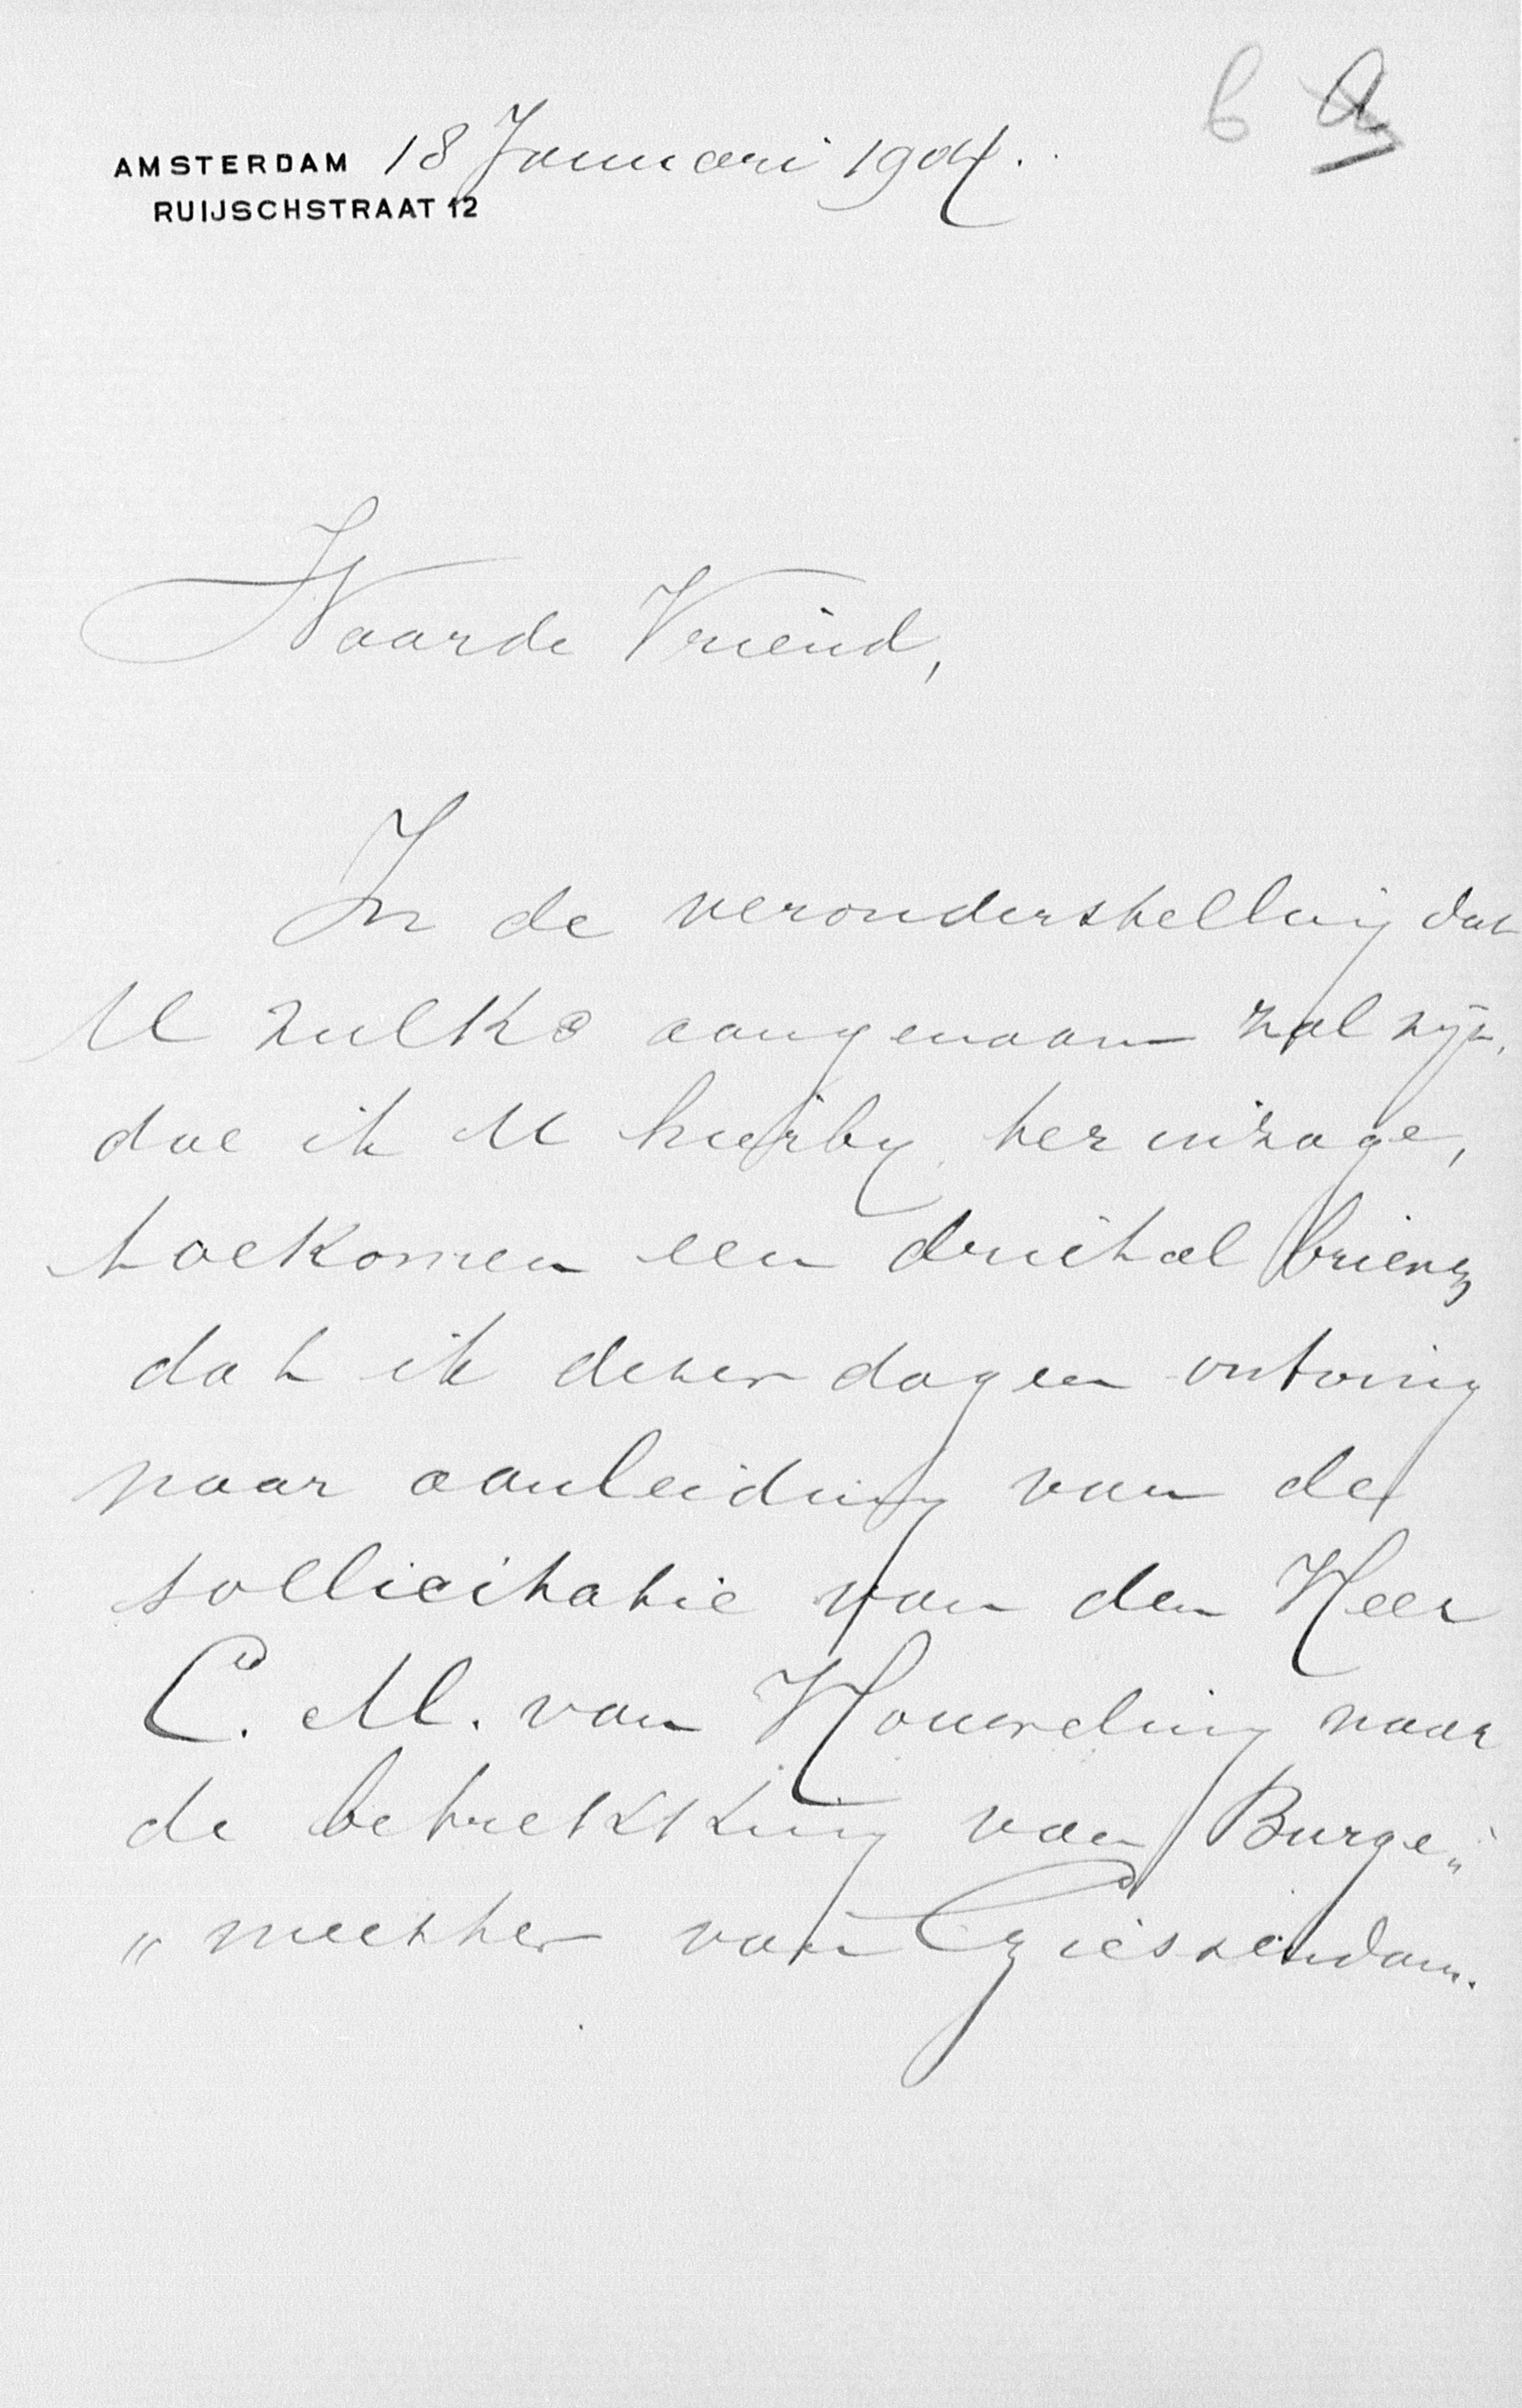 b A
AMSTERDAM 18 Januari 1904.
RUIJSCHSTRAAT 12
Waarde Vriend,
In de veronderstelling dat
U zulks aangenaam zal zijn,
doe ik U hierby ter inzage,
toekomen een drietal brieven
dat ik dezer dagen ontving
naar aanleiding van de
sollicitatie van den Heer
C. M. van Houweling naar
de betrekking van Burge„
„meester van Giessendam.